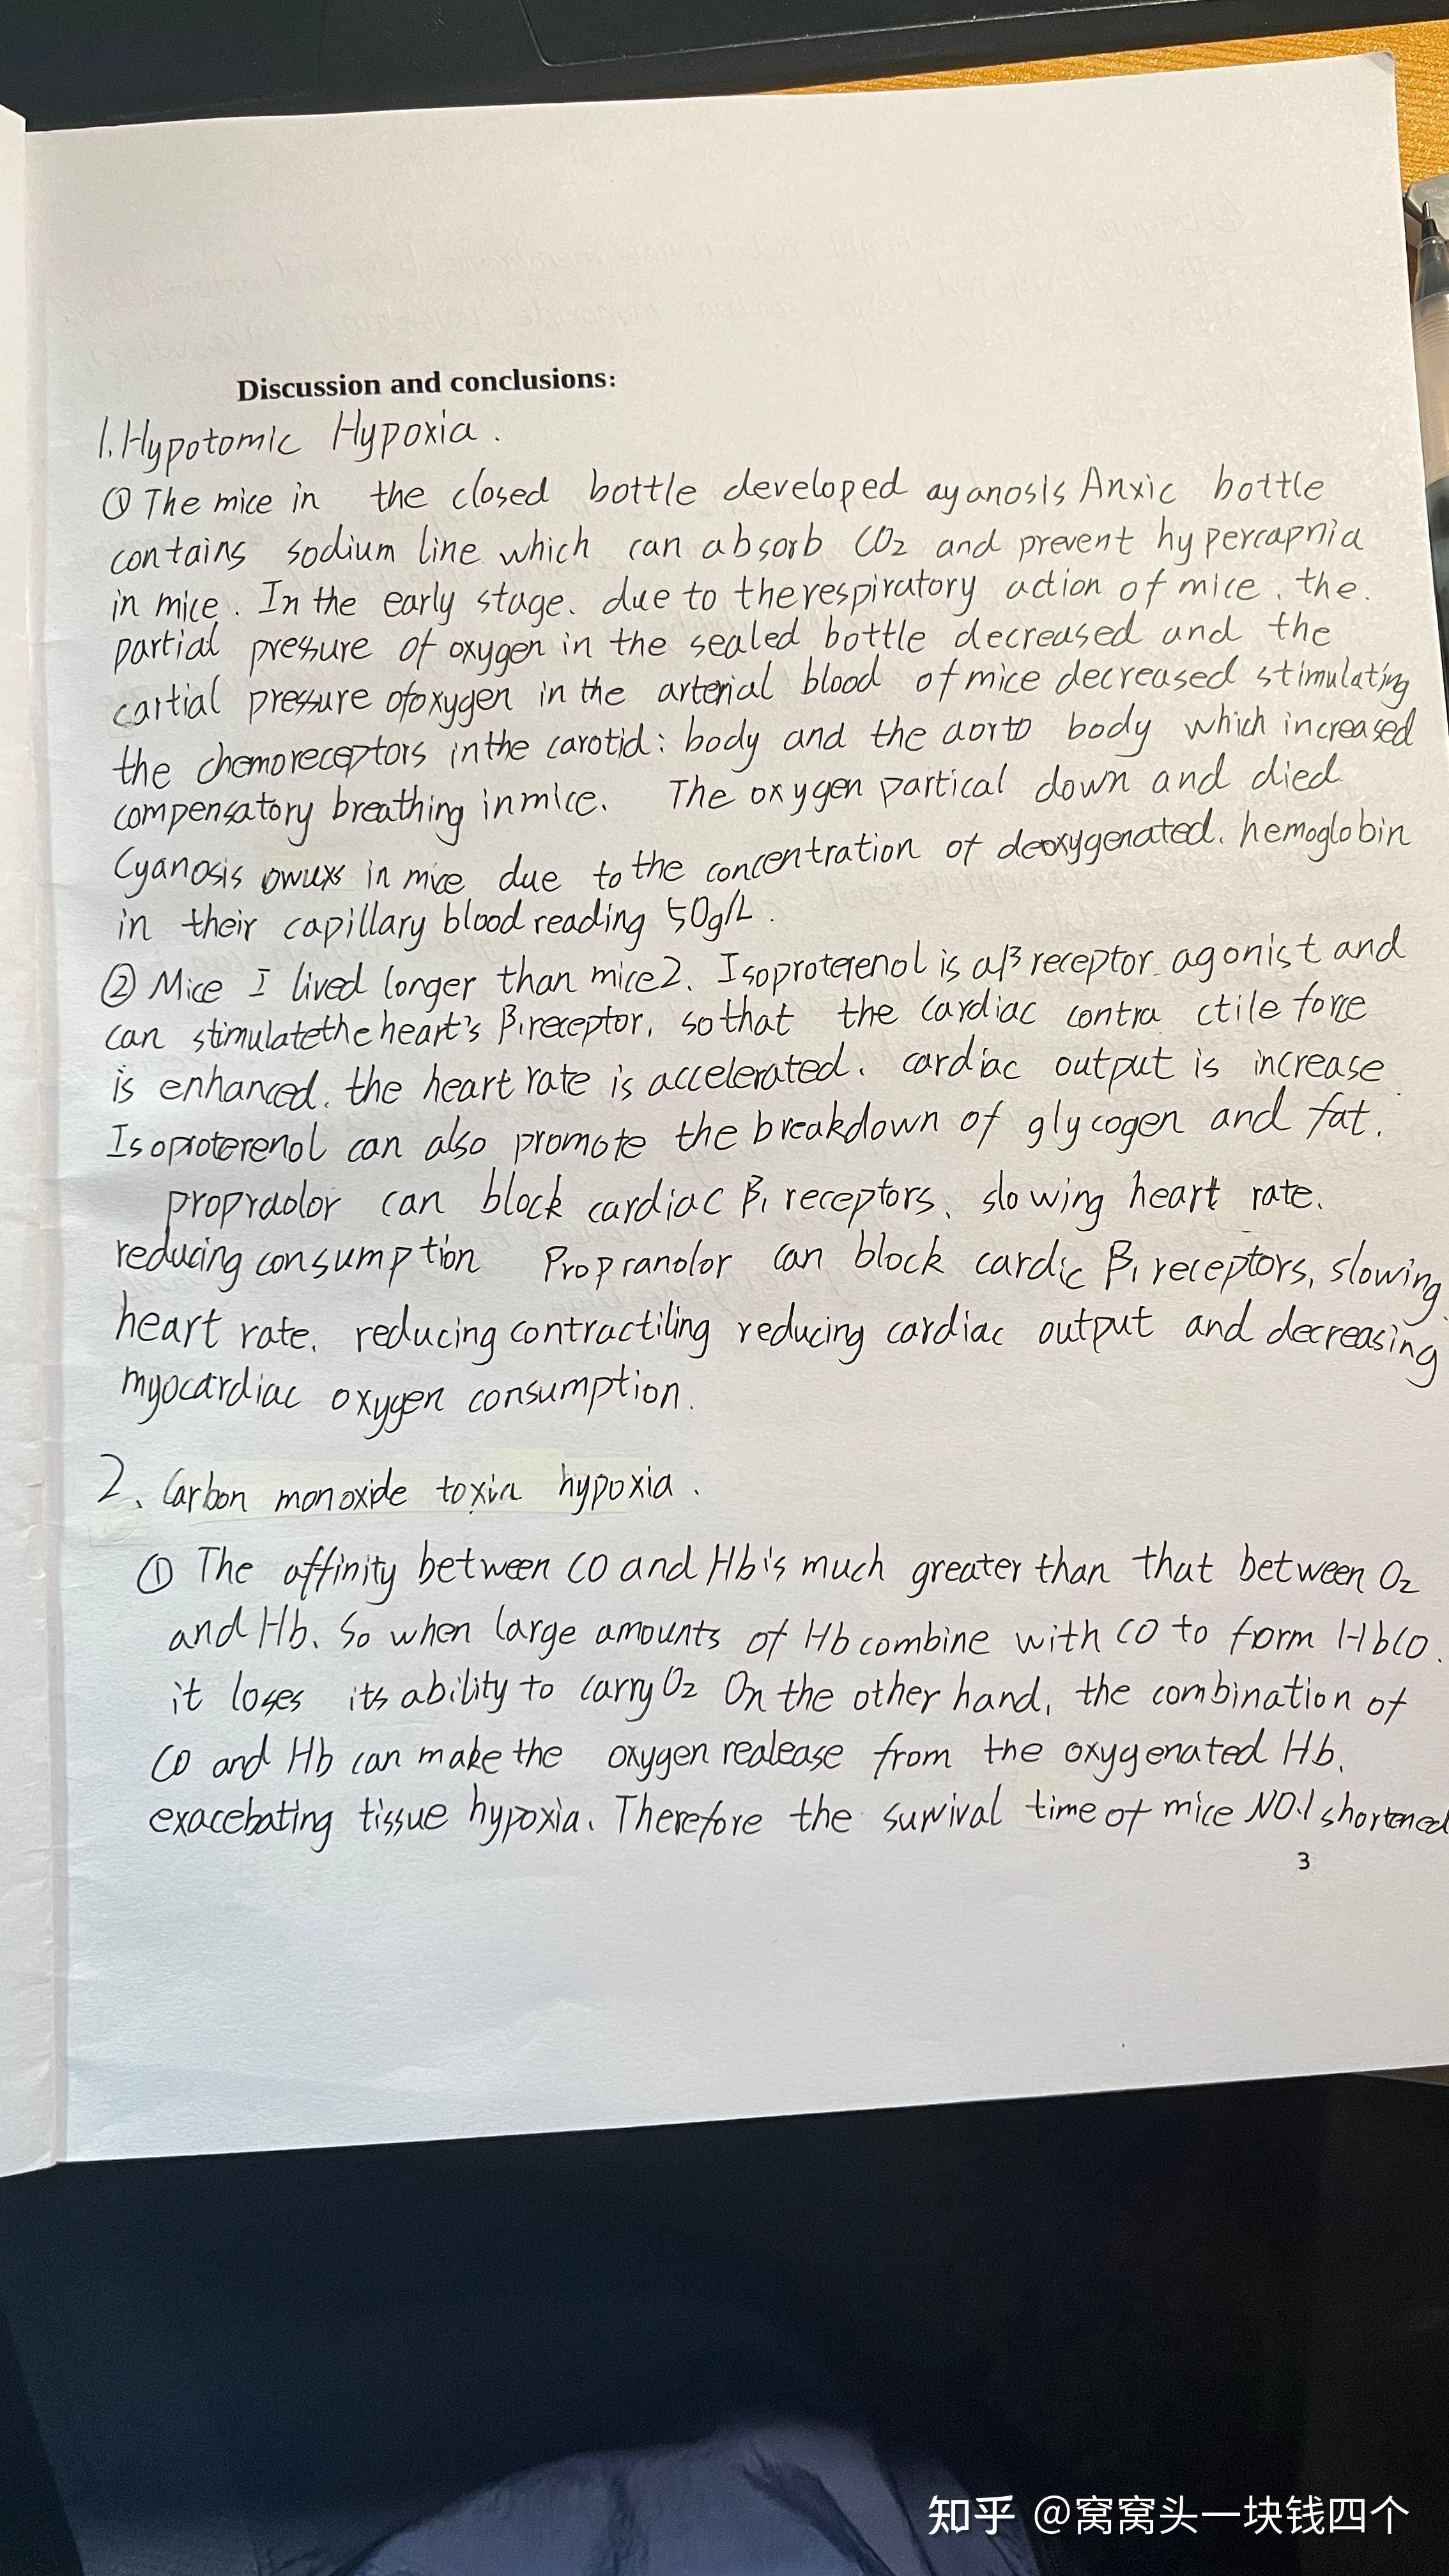 Discussion and conclusions:
1. Hypotomic Hypoxia.
① The mice in the closed bottle developed ayanosis Anxic bottle
contains sodium line which can absorb CO₂ and prevent hypercapnia
in mice. In the early stage. due to the respiratory action of mice. the.
partial pressure of oxygen in the sealed bottle decreased and the
cartial pressure of oxygen in the arterial blood of mice decreased stimulating
the chemoreceptors in the carotid: body and the aorto body which increased
compensatory breathing in mice. The oxygen partical down and died
Cyanosis in mice due to the concentration of deoxygenated. hemoglobin
in their capillary blood reading 50g/L.
② Mice I lived longer than mice 2. Isoproterenol is a β receptor agonist and
can stimulate the heart's β₁ receptor, so that the cardiac contra ctile force
is enhanced. the heart rate is accelerated. cardiac output is increase
Isoproterenol can also promote the breakdown of glycogen and fat.
propraolor can block cardiac β₁ receptors. slowing heart rate.
reducing consumption Propranolor can block cardic β₁ receptors, slowing
heart rate. reducing contractiling reducing cardiac output and decreasing
myocardiac oxygen consumption.
2. Carbon monoxide toxia hypoxia.
① The affinity between CO and Hb is much greater than that between O₂
and Hb. So when large amounts of Hb combine with CO to form HbCO.
it loses its ability to carry O₂ On the other hand, the combination of
CO and Hb can make the oxygen realease from the oxygenated Hb.
exacebating tissue hypoxia. Therefore the survival time of mice NO.1 shortened
3
知乎 @窝窝头一块钱四个